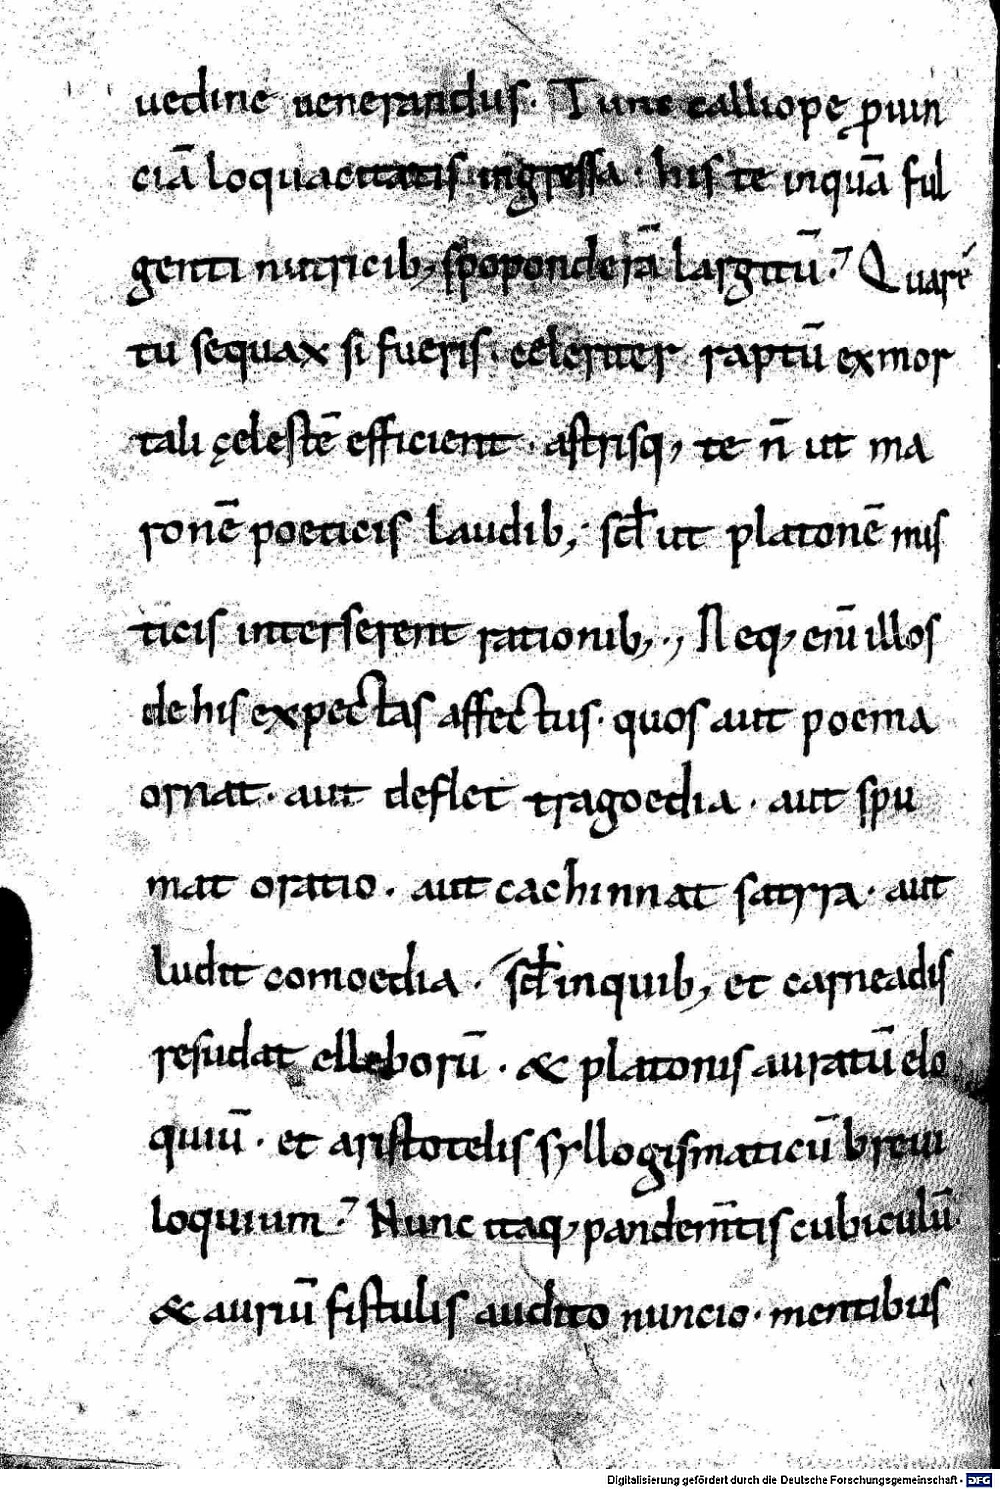 uedine uenerandus. Tunc calliopę ꝓuin
ciā loquacitatis ingressa. his te inquā ful
genti nutricib; spoponderā largitū? Quare
tu sequax si fueris. celeriter raptū exmor
tali çelestē efficient. astrisq; te n̄ ut ma
ronē poeticis laudib; sꝺ ut platonē mis
ticis intersererent rationib;., Neq; enī illos
de his expectas affectus. quos aut poema
ornat. aut deflet tragoedia. aut spu
mat oratio. aut cachinnat satyra. aut
ludit comoedia. Sꝺ inquib; et carneadis
resudat elleborū. & platonis auratū elo
quiū. et aristotelis syllogismaticū breui
loquium? Nunc itaq; pandem̄tis cubiculū.
& auriū fistulis audito nuncio. mentibus
Digitalisierung gefördert durch die Deutsche Forschungsgemeinschaft - DFG